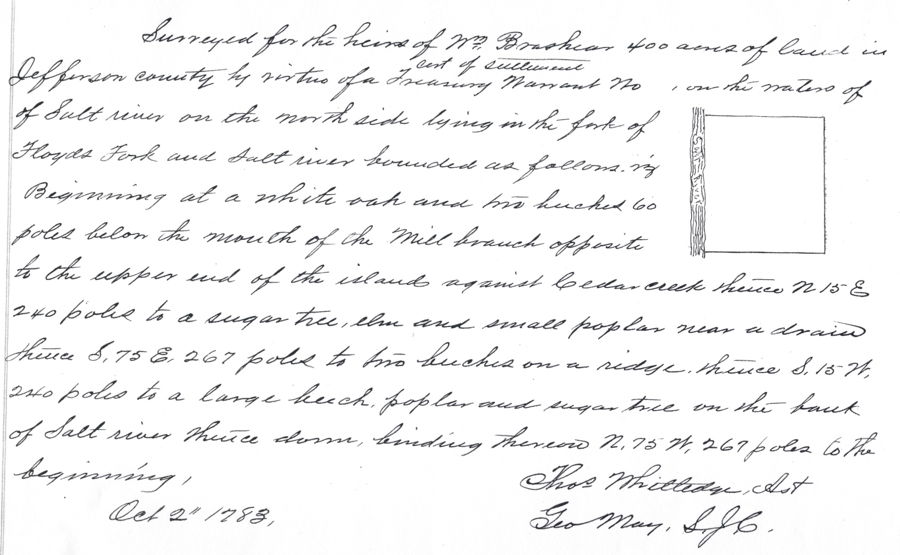 Surveyed for the heirs of Wm. Brashear 400 acres of land in
cert of settlement
Jefferson county by virtue of a Treasury Warrant No , on the waters of
of Salt river on the north side lying in the fork of
Floyds Fork and Salt river bounded as follows. viz
Beginning at a white oak and two beeches 60
poles below the mouth of the Mill branch opposite
to the upper end of the island against Cedar creek thence N 15 E
240 poles to a sugar tree, elm and small poplar near a drain
thence S, 75 E, 267 poles to two beeches on a ridge, thence S. 15 W,
240 poles to a large beech, poplar and sugar tree on the bank
of Salt river thence down, binding thereon N, 75 W, 267 poles to the
beginning,
Thos Whitledge, Ast
Oct 2" 1783,
Geo May, S.J.C.
Salt River